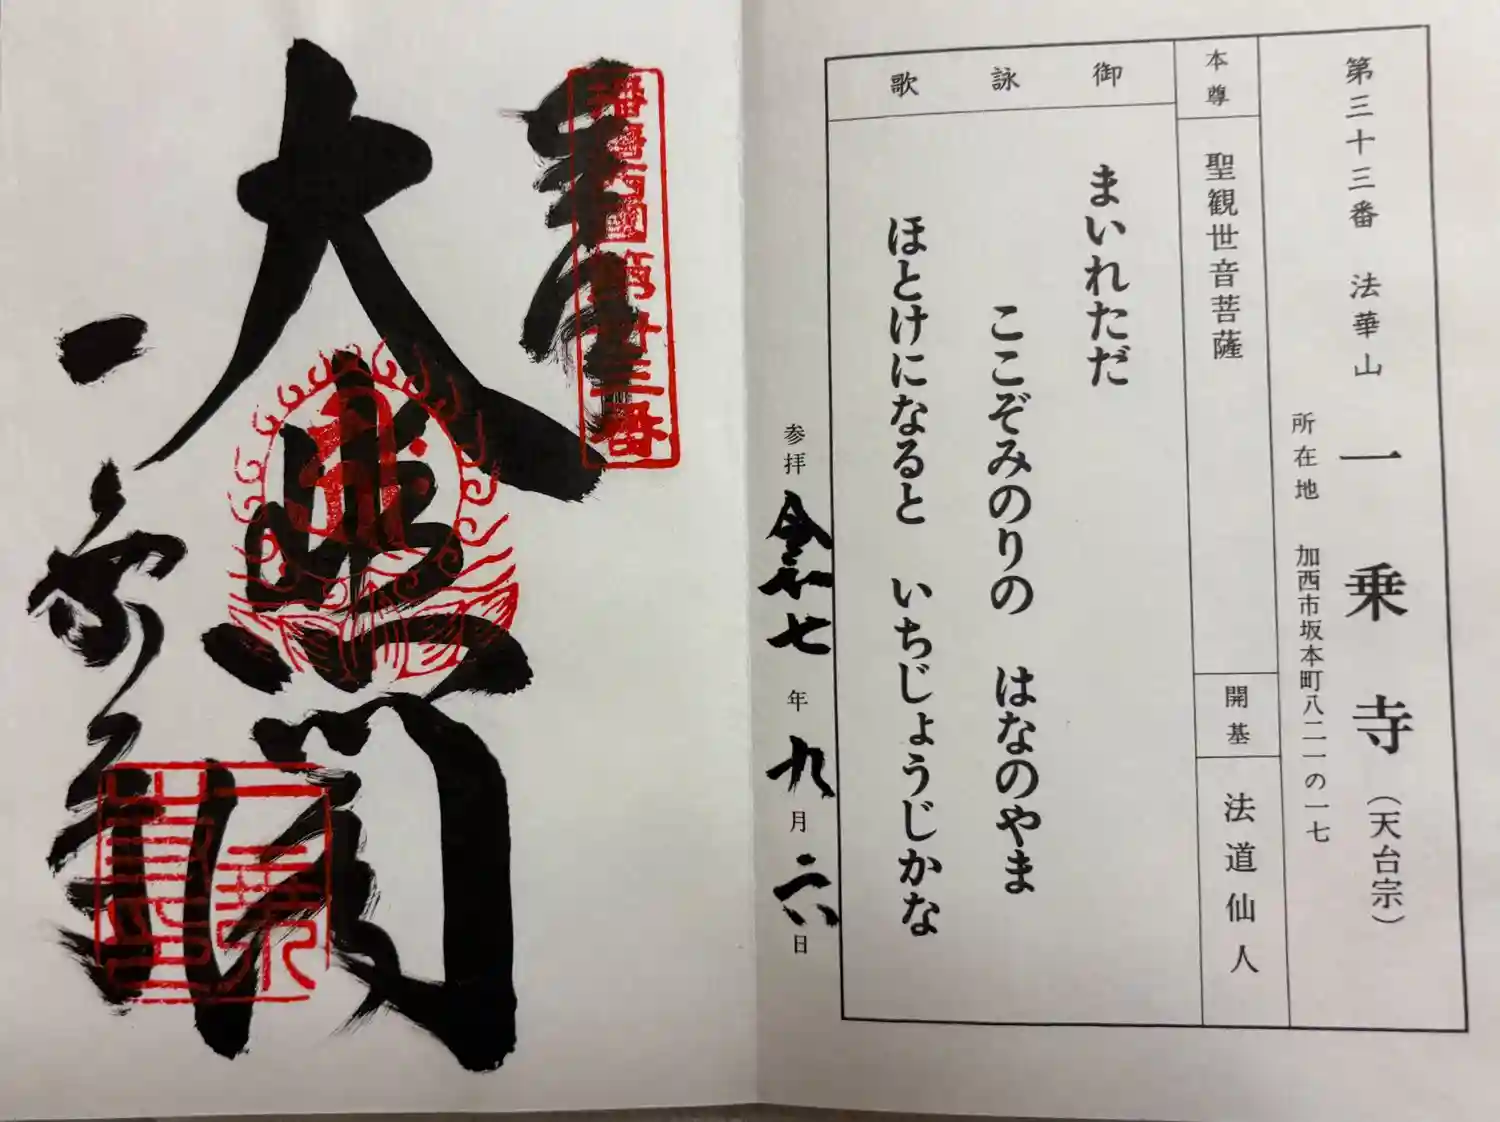 第三十三番 法華山 一乗寺（天台宗）
所在地 加西市坂本町八二一の一七
本尊
聖観世音菩薩
開基
法道仙人
御詠歌
まいれただ
ここぞみのりの はなのやま
ほとけになると いちじょうじかな
参拝 令和七年九月二八日
奉拝
播磨西国第卅三番
大悲閣
一乗寺